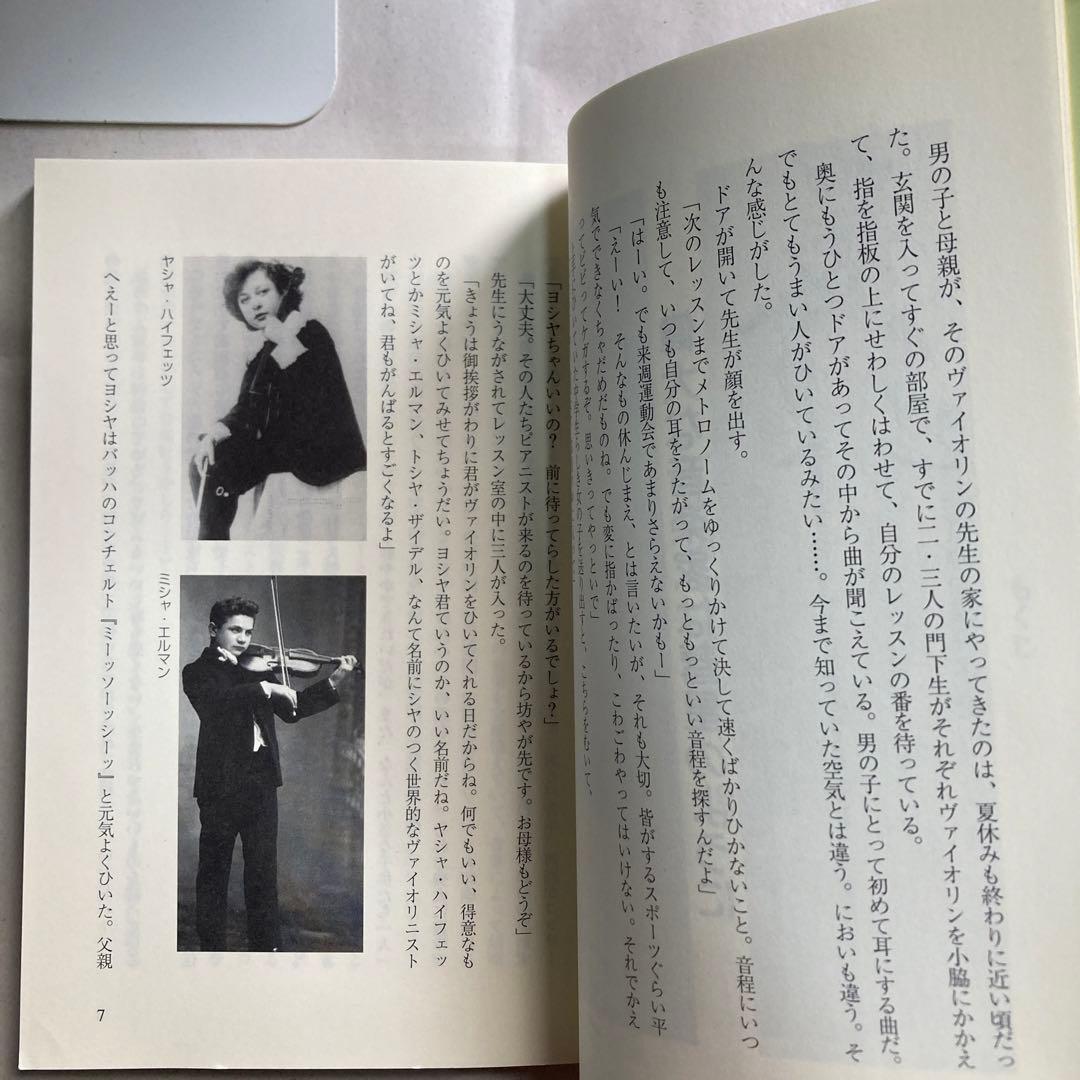 男の子と母親が、そのヴァイオリンの先生の家にやってきたのは、夏休みも終わりに近い頃だっ
た。玄関を入ってすぐの部屋で、すでに二・三人の門下生がそれぞれヴァイオリンを小脇にかかえ
て、指を指板の上にせわしくはわせて、自分のレッスンの番を待っている。
奥にもうひとつドアがあってその中から曲が聞こえている。男の子にとって初めて耳にする曲だ。
でもとてもうまい人がひいているみたい……。今まで知っていた空気とは違う。においも違う。そ
んな感じがした。
ドアが開いて先生が顔を出す。
「次のレッスンまでメトロノームをゆっくりかけて決して速くばかりひかないこと。音程にいつ
も注意して、いつも自分の耳をうたがって、もっともっといい音程を探すんだよ」
「はーい。でも来週運動会であまりさらえないかもー」
「えーい！　そんなもの休んじまえ、とは言いたいが、それも大切。皆がするスポーツぐらい平
気でできなくちゃだめだものね。でも変に指かばったり、こわごわやってはいけない。それでかえ
ってビビってケガするぞ。思いきってやっといで」
女の子を送り出すと、こちらをむいて、
「ヨシヤちゃんいいの？　前に待ってらした方がいるでしょ？」
「大丈夫。その人たちピアニストが来るのを待っているから坊やが先です。お母様もどうぞ」
先生にうながされてレッスン室の中に三人が入った。
「きょうは御挨拶がわりに君がヴァイオリンをひいてくれる日だからね。何でもいい、得意なも
のを元気よくひいてみせてちょうだい。ヨシヤ君ていうのか、いい名前だね。ヤシャ・ハイフェッ
ツとかミシャ・エルマン、トシャ・ザイデル、なんて名前にシヤのつく世界的なヴァイオリニスト
がいてね、君もがんばるとすごくなるよ」
ヤシャ・ハイフェッツ
ミシャ・エルマン
へえーと思ってヨシヤはバッハのコンチェルト『ミーッソーッシーッ』と元気よくひいた。父親
7